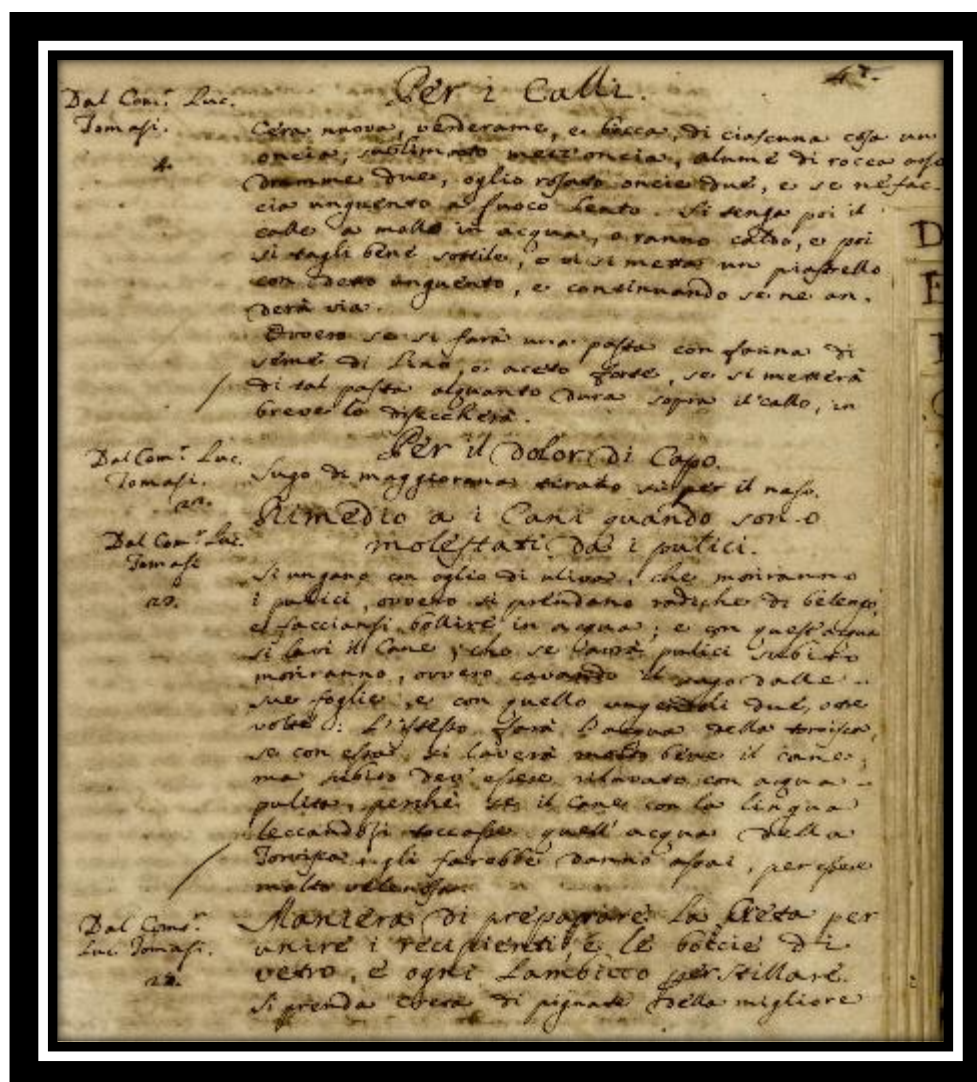 47.
Per i Calli.
Dal Com.r Luc.
Tomasi.
4
Cera nuova, verderame, e bocca, di ciascuna cosa un
oncia, sublimato mezz'oncia, alume di rocca arso
dramme due, oglio rosato oncie due, e se ne fac-
cia unguento a fuoco lento. Si tenga poi il
callo a mollo in acqua, o ranno caldo, e poi
si tagli bene sottile, e vi si metta un piastrello
con detto unguento, e continuando se ne an-
derà via.
Ovvero se si farà una pasta con farina di
seme di Lino, e aceto forte, se si metterà
di tal pasta alquanto dura sopra il callo, in
breve lo disecchera.
Per il dolor di Capo.
Dal Com.r Luc.
Tomasi.
Sugo di maggiorana tirato su per il naso.
Rimedio a i Cani quando sono
molestati da i pulici.
Dal Com.r Luc.
Tomasi
Si ungano con oglio di uliva, che moriranno
i pulici, ovvero si prendano radiche di
e facciansi bollire in acqua; e con quest'acqua
si lavi il Cane, che se haurà pulici subito
moriranno, ovvero cavando il sugo dalle
sue foglie, e con quello ungerli due, o tre
volte: L'istesso farà l'acqua della torvisca,
se con essa si laverà molto bene il cane;
ma subito dev'essere rilavato con acqua
pulita, perchè se il Cane con la lingua
leccandosi toccasse quell'acqua della
Torvisca, gli farebbe danno assai, per essere
molto velenosa.
Maniera di preparare la Creta per
unire i recipienti, e le boccie di
vetro, e ogni Lambicco per stillare.
Dal Com.r
Luc. Tomasi.
Si prenda Creta di pignate della migliore
D
E